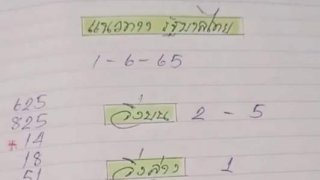 แนวทาง รัฐบาลไทย
1-6-65
625
825
วิ่งบน 2 - 5
+14
18
วิ่งล่าง 1
51